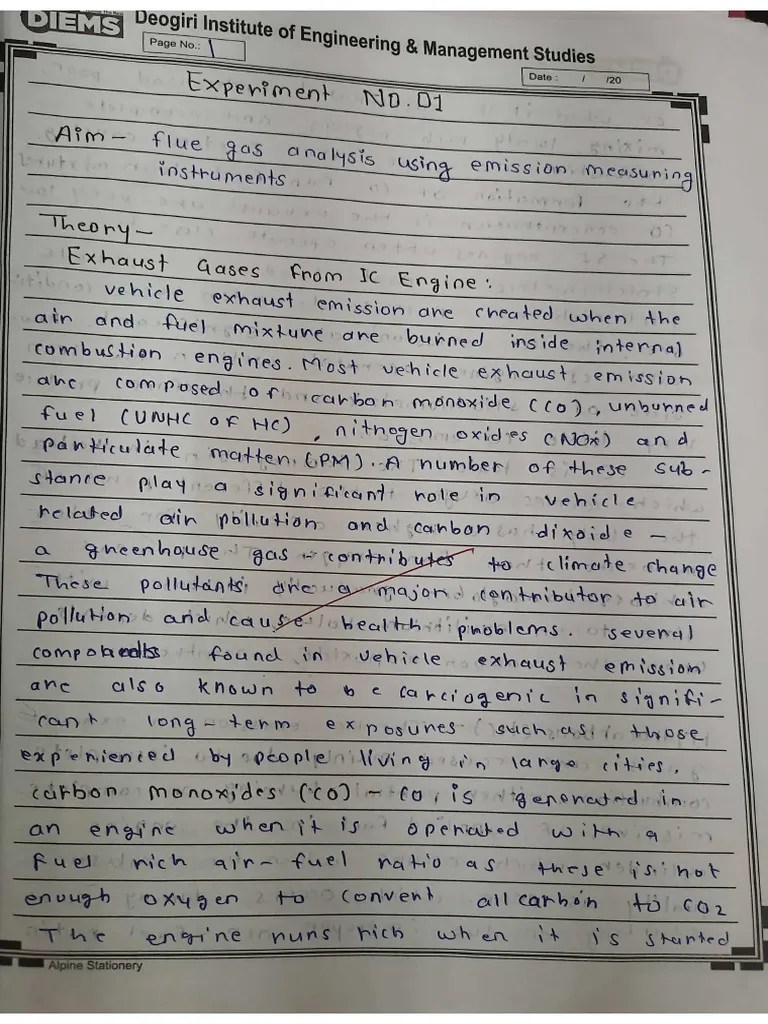 DIEMS
Deogiri Institute of Engineering & Management Studies
Page No.: 1
Date : / /20
Experiment No. 01
Aim - flue gas analysis using emission measuring
instruments
Theory -
Exhaust Gases from IC Engine :
vehicle exhaust emission are created when the
air and fuel mixture are burned inside internal
combustion engines. Most vehicle exhaust emission
are composed of carbon monoxide (CO), unburned
fuel (UNHC of HC), nitrogen oxides (NOx) and
particulate matter (PM). A number of these sub-
stance play a significant role in vehicle
related air pollution and carbon dixoide -
a greenhouse gas - contributes to climate change
These pollutants are a major contributor to air
pollution and cause health problems. several
found in vehicle exhaust emission
are also known to be carciogenic in signifi-
cant long-term exposures such as those
experienced by people living in large cities.
carbon monoxides (CO) - CO is generated in
an engine when it is operated with a
fuel rich air-fuel ratio as these is not
enough oxygen to convent all carbon to CO2
The engine runs rich when it is started
Alpine Stationery